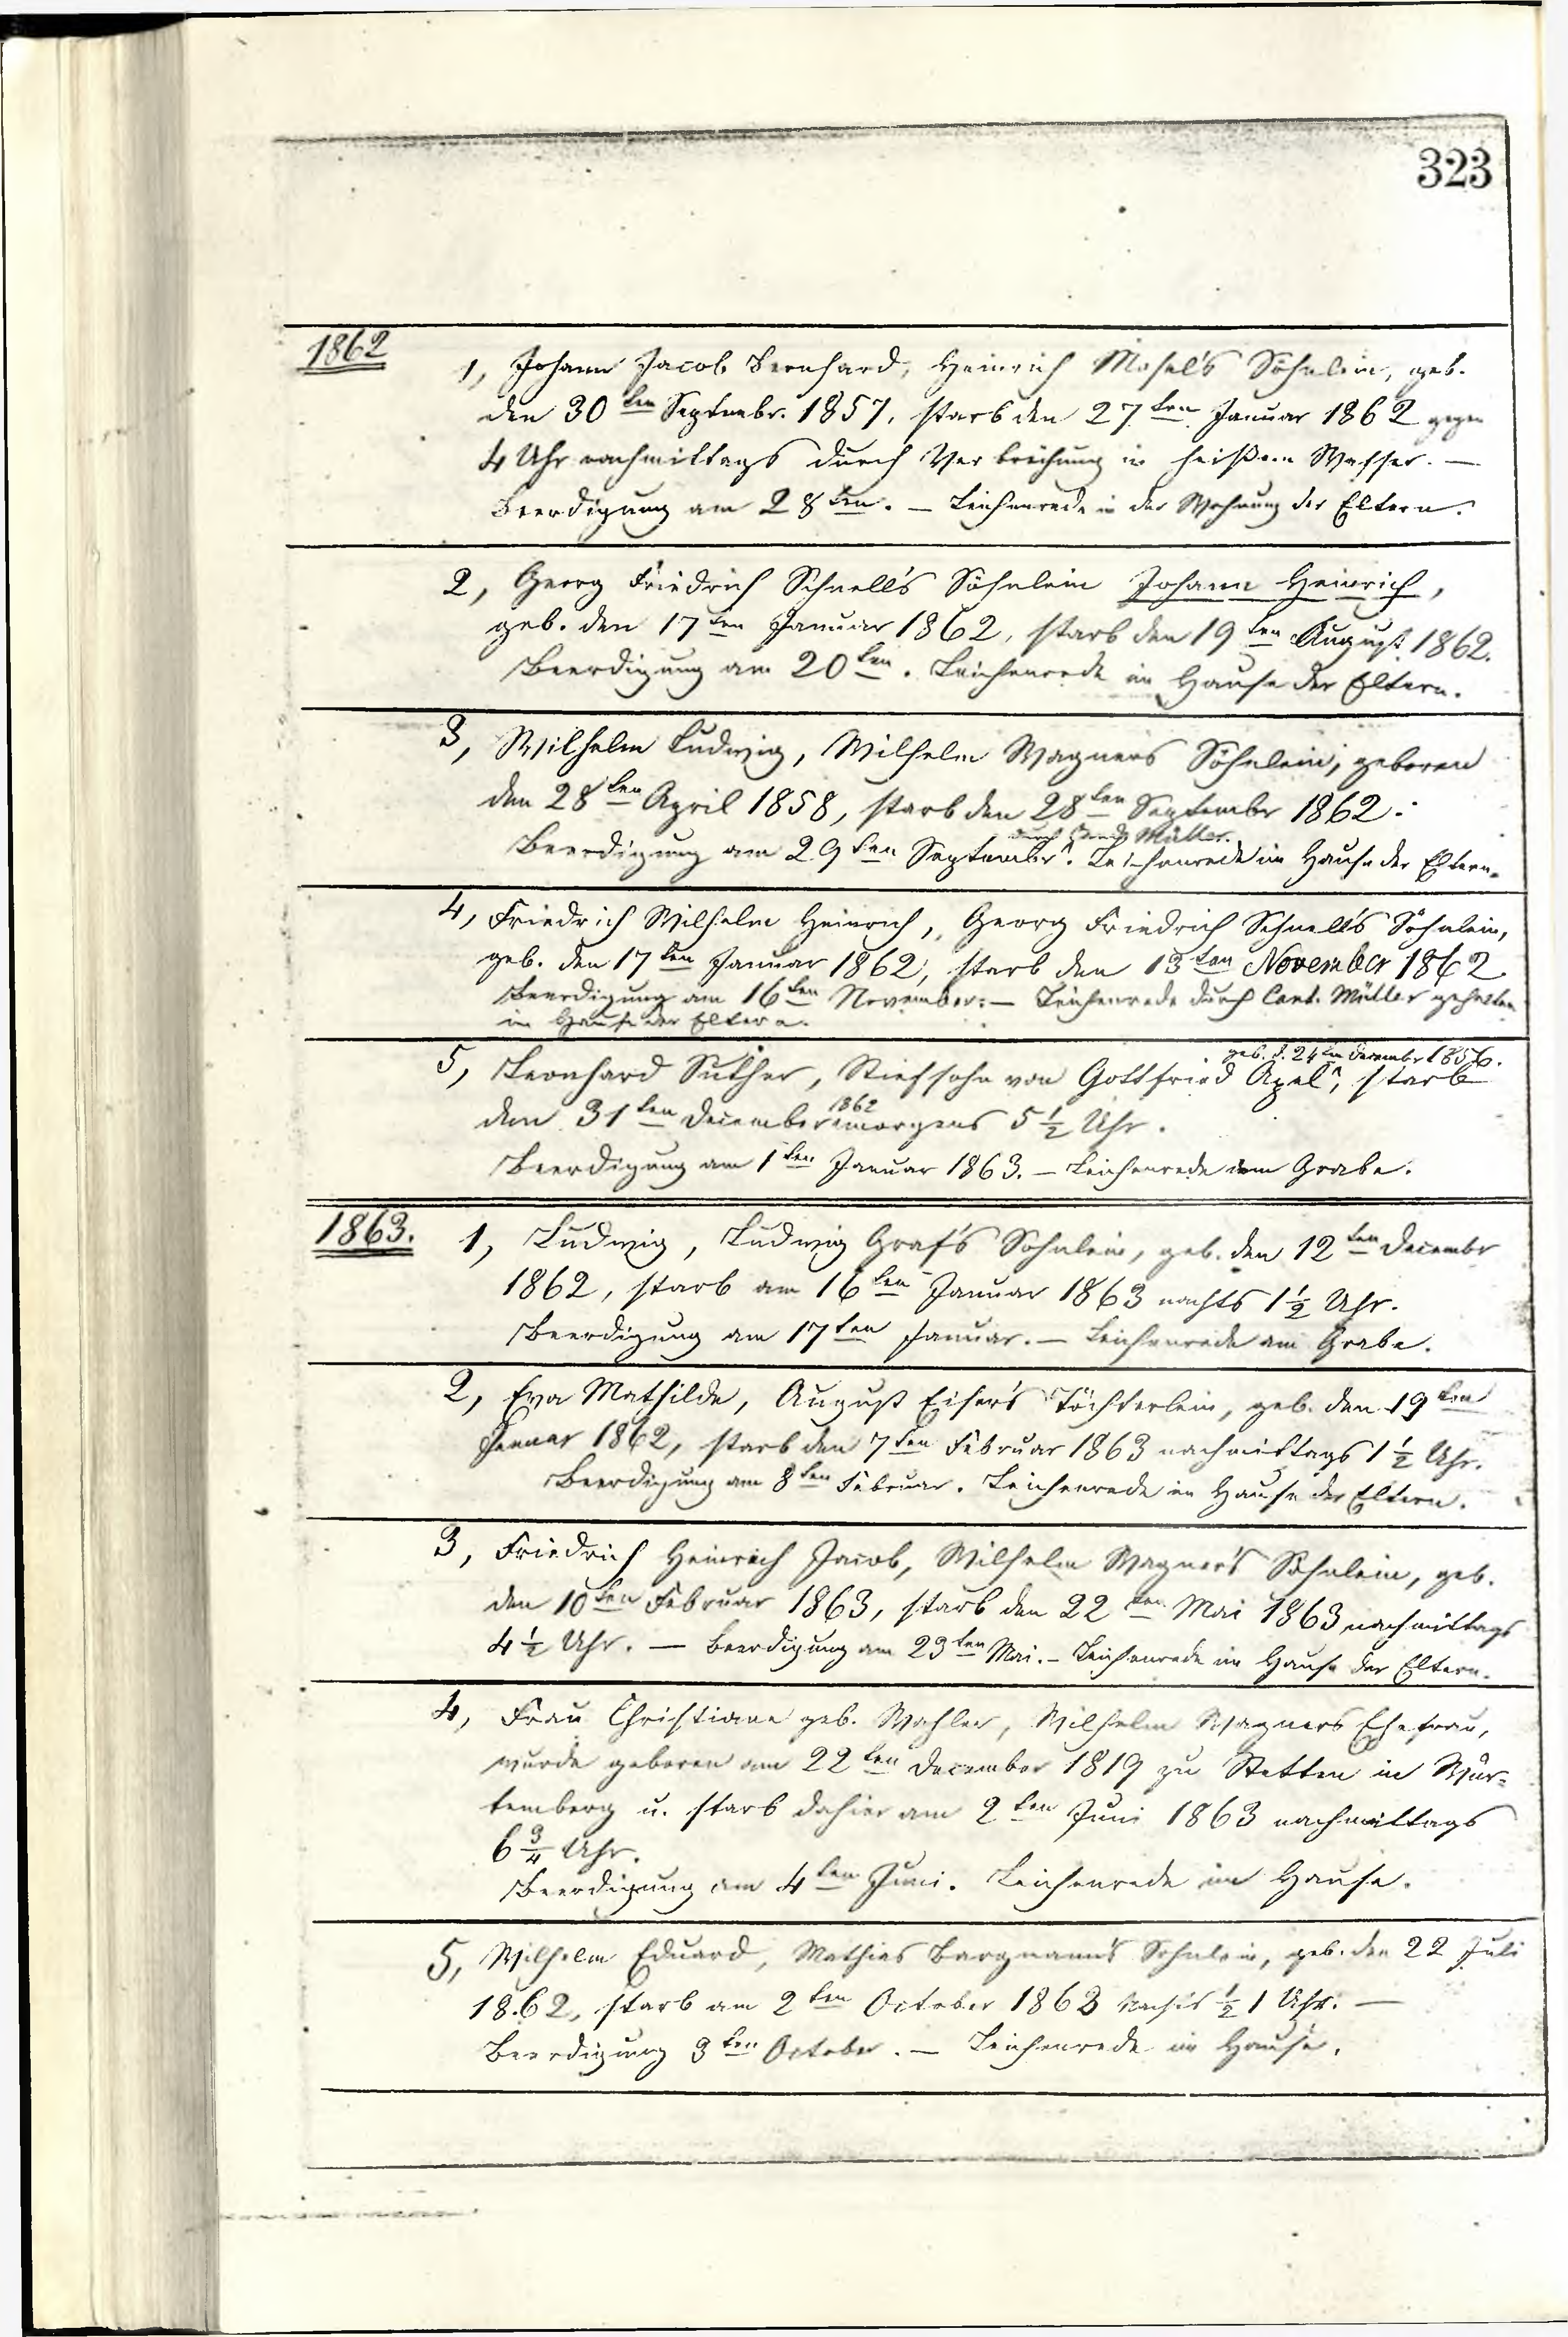 323
1862
1, Johann Jacob Bernhard, Heinrich Mosel's Söhnlein, geb.
den 30ten Septembr. 1857, starb den 27ten Januar 1862 gegen
4 Uhr nachmittags durch Verbrühung in heißem Wasser. —
Beerdigung am 28ten. — Leichenrede in der Wohnung der Eltern.
2, Georg Friedrich Schnell's Söhnlein Johann Heinrich,
geb. den 17ten Januar 1862, starb den 19ten August 1862.
Beerdigung am 20ten. Leichenrede im Hause der Eltern.
3, Wilhelm Ludwig, Wilhelm Wagners Söhnlein, geboren
den 28ten April 1858, starb den 28ten September 1862.
durch Müller.
Beerdigung am 29ten September. Leichenrede im Hause der Eltern.
4, Friedrich Wilhelm Heinrich, Georg Friedrich Schnell's Söhnlein,
geb. den 17ten Januar 1862, starb den 13ten November 1862
Beerdigung am 16ten November. — Leichenrede durch Cant. Müller gehalten
im Hause der Eltern.
geb. d. 24ten December 1856.
5, Leonhard Suther, Stiefsohn von Gottfried Apel, starb
den 31ten December 1862 morgens 5 ½ Uhr.
Beerdigung am 1ten Januar 1863. — Leichenrede am Grabe.
1863.
1, Ludwig, Ludwig Graf's Sohnlein, geb. den 12ten Decembr
1862, starb am 16ten Januar 1863 nachts 1 ½ Uhr.
Beerdigung am 17ten Januar. — Leichenrede am Grabe.
2, Eva Mathilde, August Eiser's Töchterlein, geb. den 19ten
Januar 1862, starb den 7ten Februar 1863 nachmittags 1 ½ Uhr.
Beerdigung am 8ten Februar. Leichenrede im Hause der Eltern.
3, Friedrich Heinrich Jacob, Wilhelm Wagner's Söhnlein, geb.
den 10ten Februar 1863, starb den 22ten Mai 1863 nachmittags
4 ½ Uhr. — Beerdigung am 23ten Mai. — Leichenrede im Hause der Eltern.
4, Frau Christiane geb. Wahler, Wilhelm Wagners Ehefrau,
wurde geboren am 22ten December 1819 zu Stetten in Wür-
temberg u. starb dahier am 2ten Juni 1863 nachmittags
6 ¾ Uhr.
Beerdigung am 4ten Juni. Leichenrede im Hause.
5, Wilhelm Eduard, Mathias Bargmann's Sohnlein, geb. den 22 Juli
1862, starb am 2ten October 1863 Nachts ½ 1 Uhr. —
Beerdigung 3ten October. — Leichenrede im Hause.